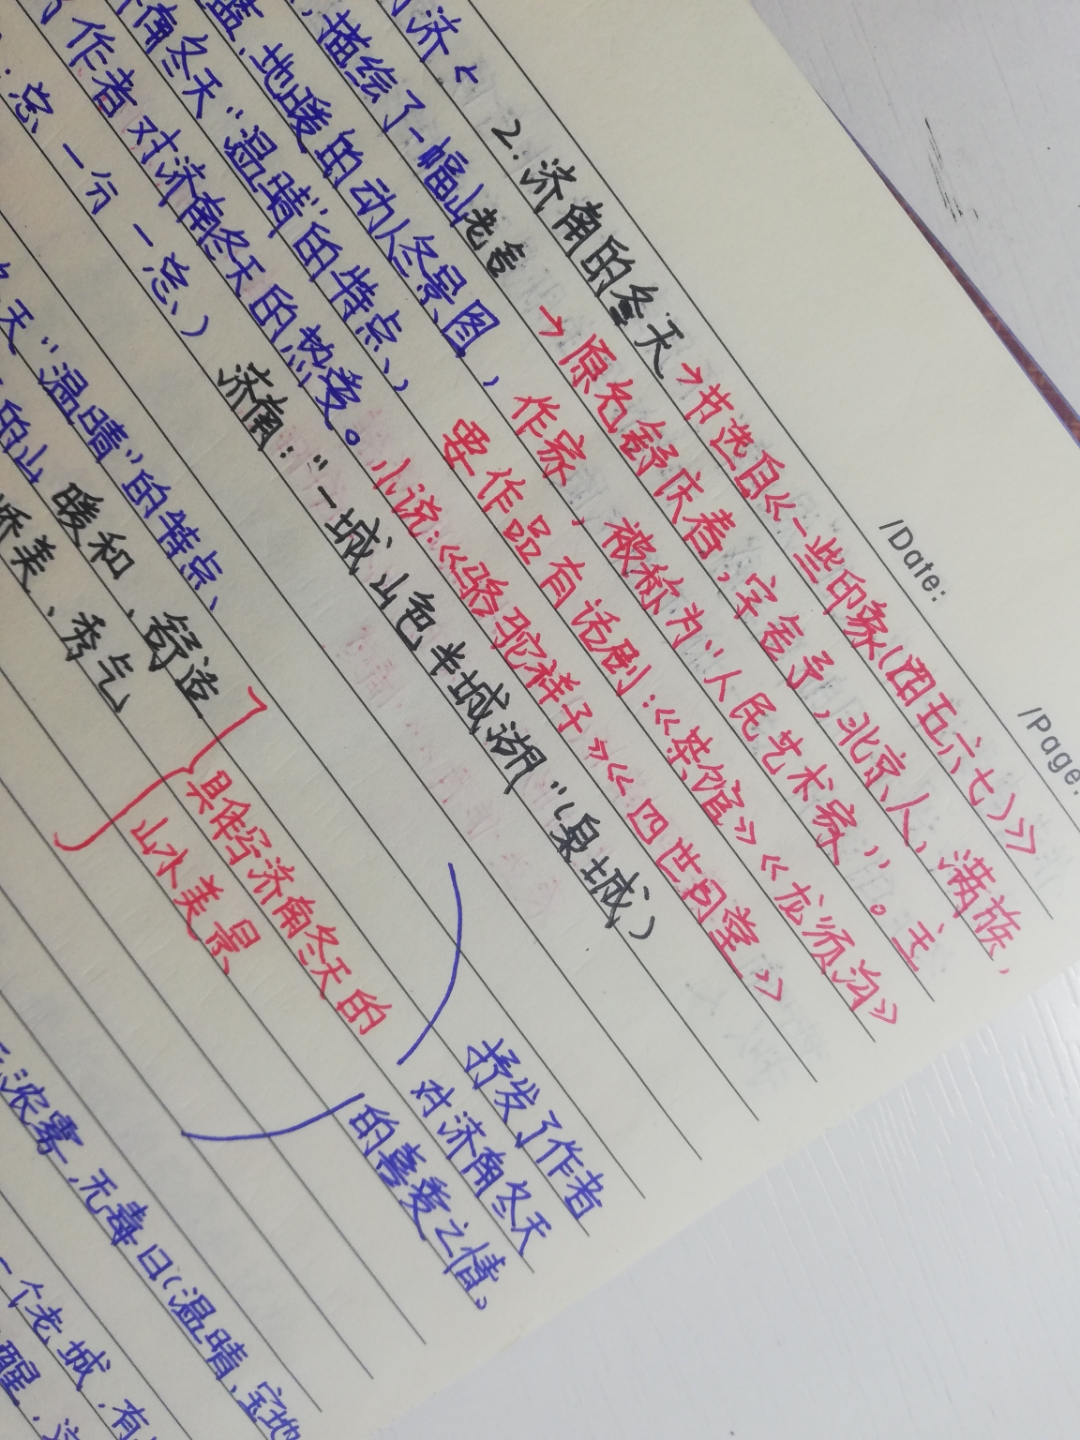 /Date:
/Page:
2.济南的冬天→节选自《一些印象(四五六七)》
老舍→原名舒庆春,字舍予,北京人,满族,
作家,被称为"人民艺术家"。主
要作品有话剧:《茶馆》《龙须沟》
小说:《骆驼祥子》《四世同堂》
济南:"一城山色半城湖"(泉城)
济
描绘了一幅山
蓝、地暖的动人冬景图,
冬天"温晴"的特点,
作者对济南冬天的热爱。
总一分一总、)
天"温晴"的特点、
的山 暖和、舒适
娇美、秀气
具体写济南冬天的
山水美景
抒发了作者
对济南冬天
的喜爱之情,
浓雾,无毒日(温晴、宝地
一个老城,有
醒,